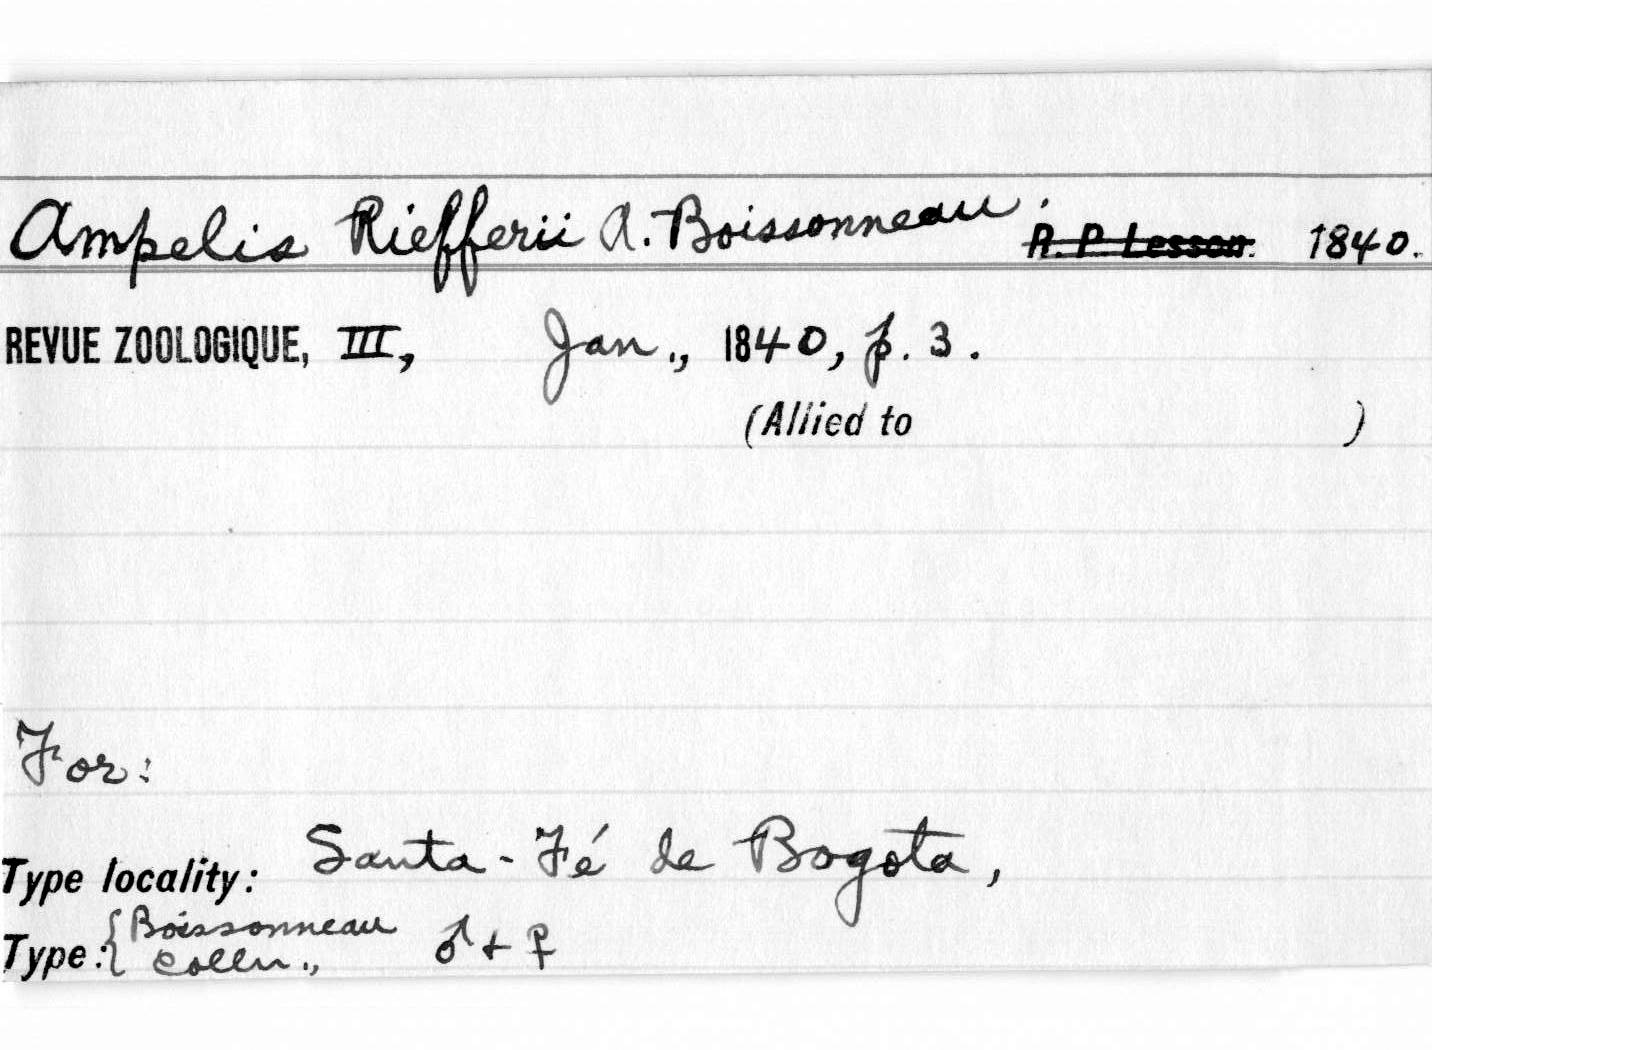 Ampelis Riefferii A. Boissonneau. R. P. Lesson. 1840.
REVUE ZOOLOGIQUE, III, Jan., 1840, p. 3.
(Allied to )
For:
Type locality: Santa-Fé de Bogota,
Type: { Boissonneau
Colln., ♂ + ♀